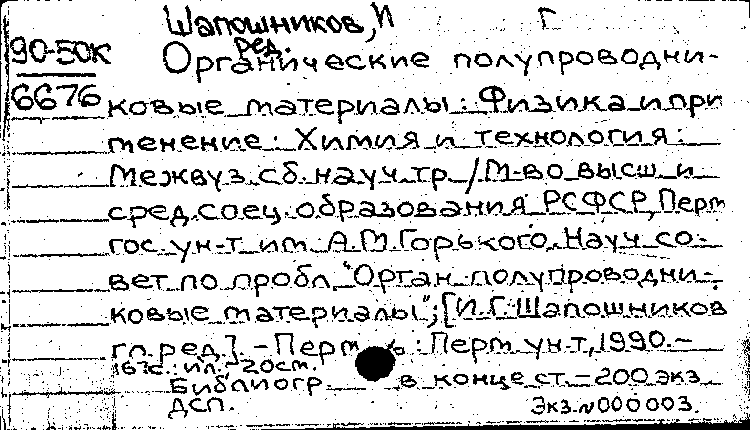 Шапошников, И Г
ред.
90-50К Органические полупроводни-
6676 ковые материалы: Физика и при
менение: Химия и технология:
Межвуз. сб. науч. тр. / М-во высш. и
сред. спец. образования РСФСР, Перм
гос. ун-т им. А.М. Горького, Науч. со-
вет по пробл. "Орган. полупроводни-
ковые материалы"; [И.Г. Шапошников
гл. ред.]. - Пермь: Перм. ун-т, 1990. -
167с.: ил.; 20см.
Библиогр. в конце ст. - 200 экз.
ДСП. Экз. N000003.